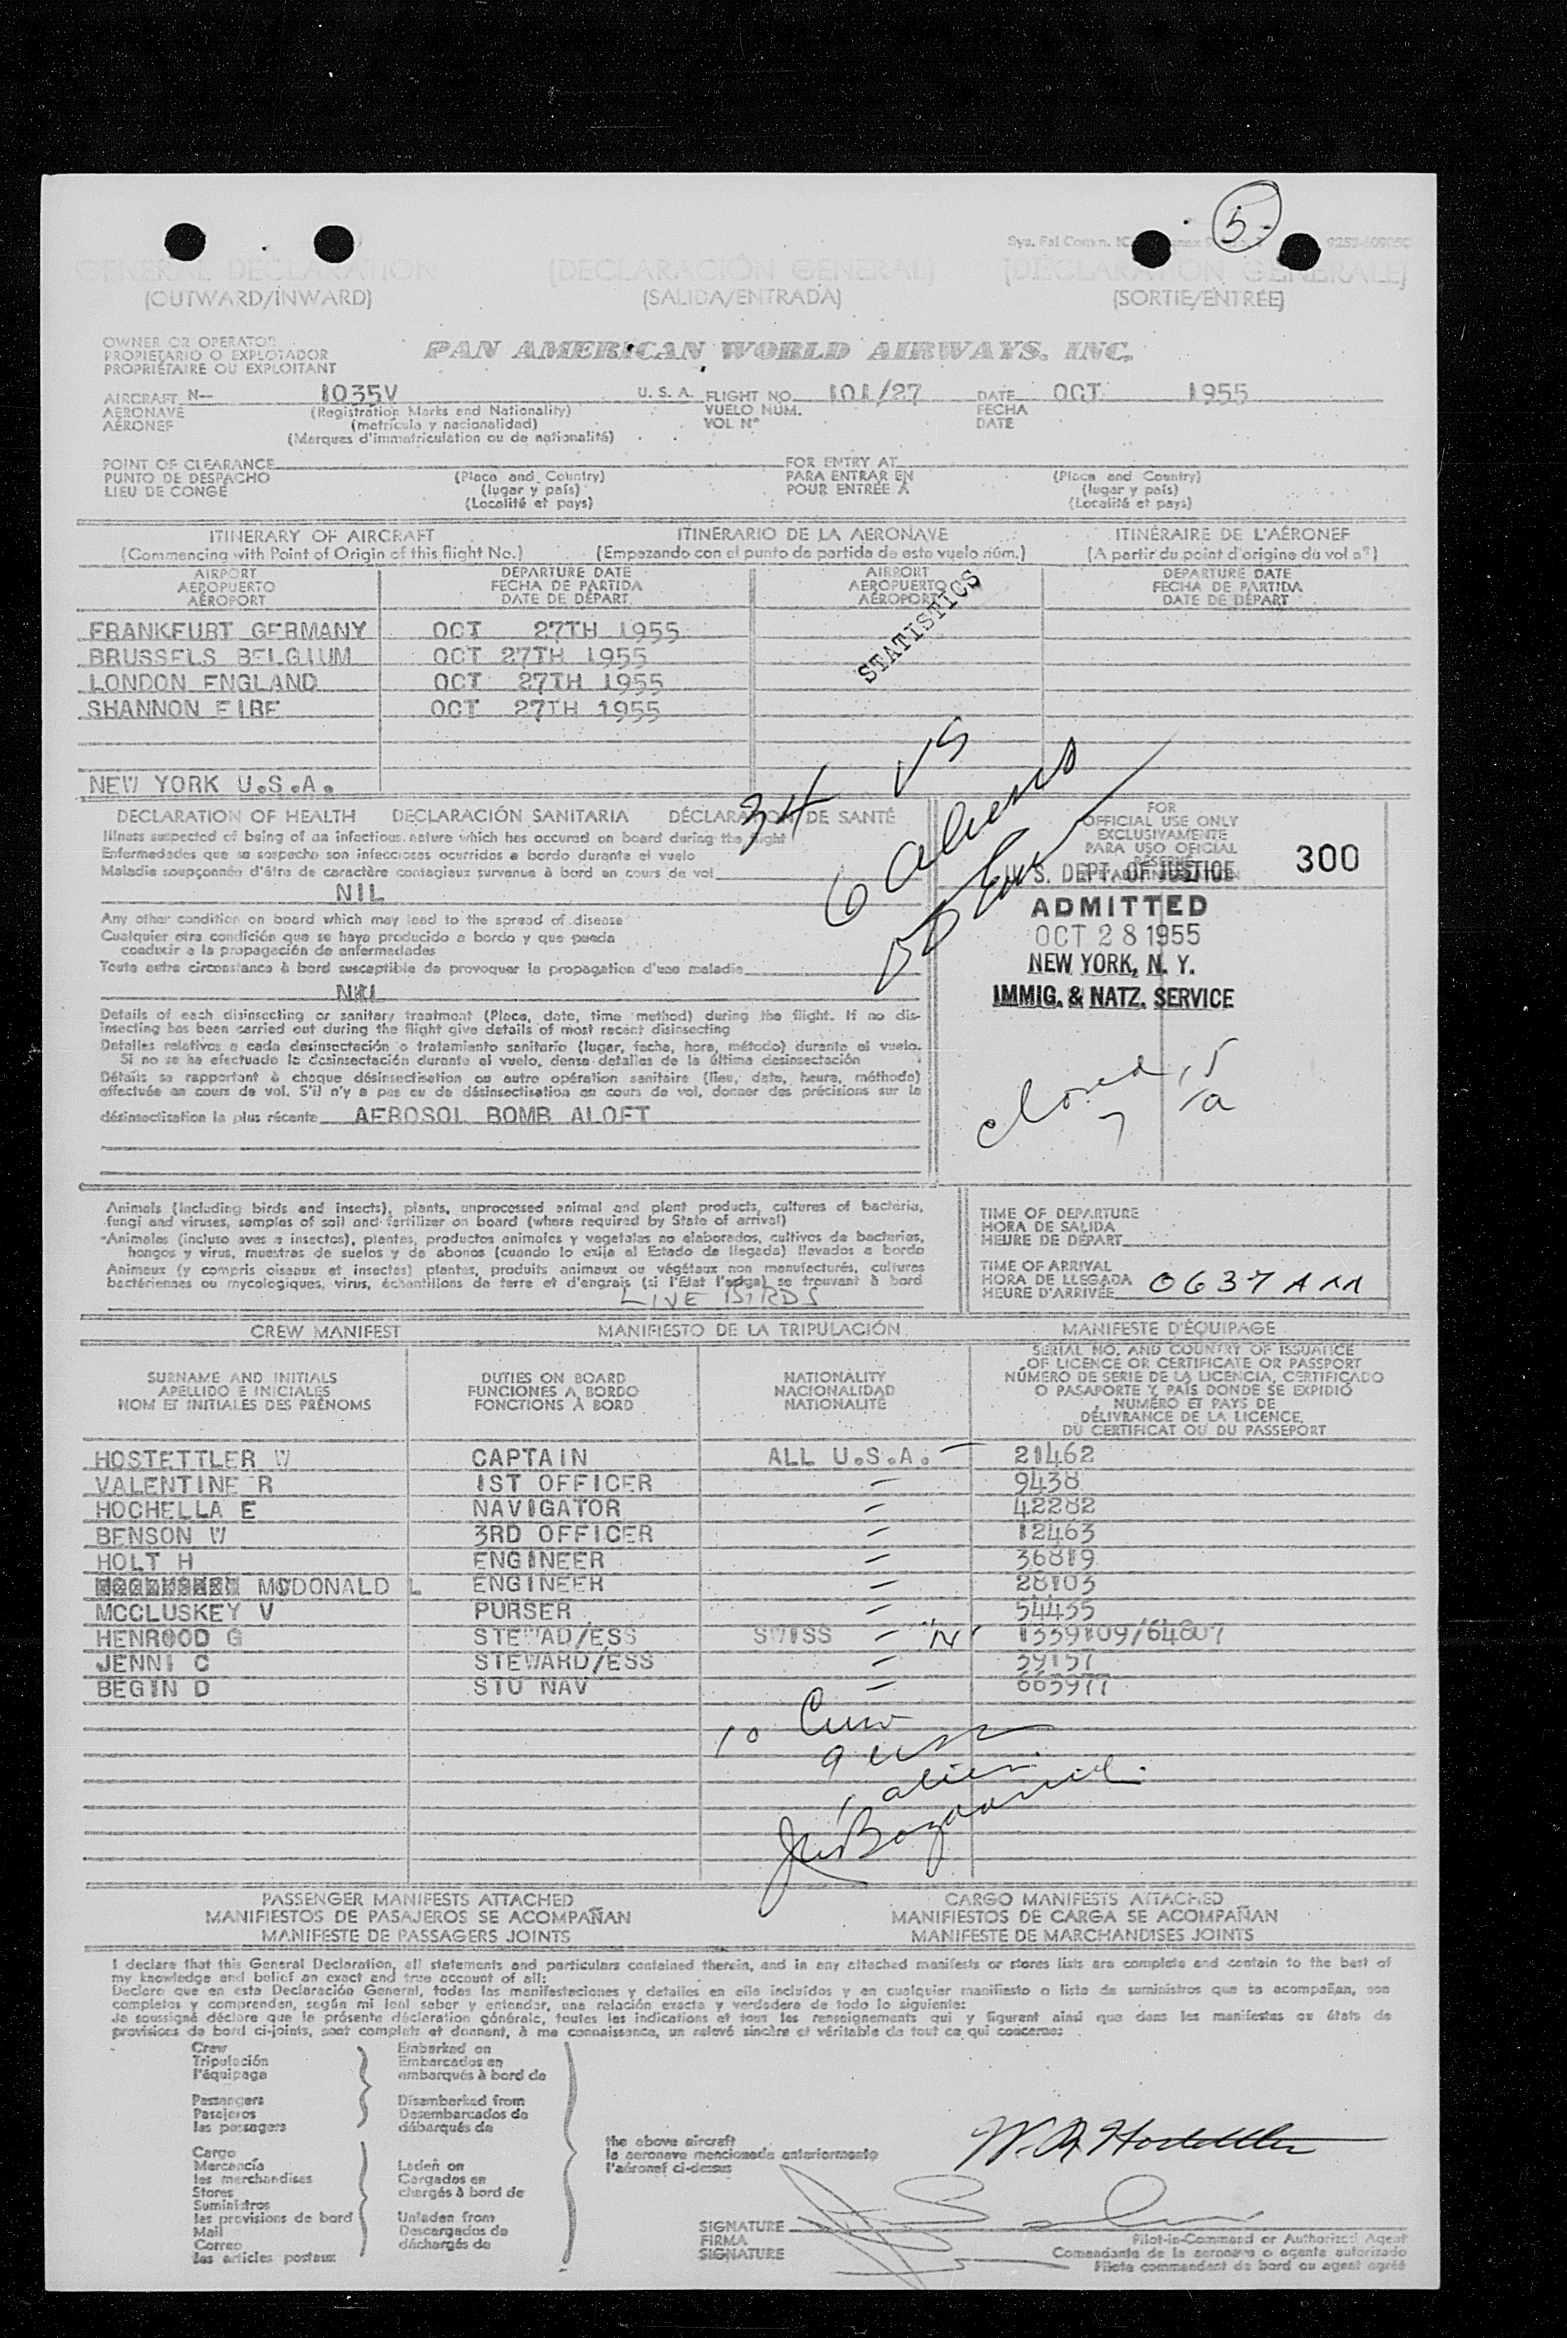 5
GENERAL DECLARATION (DECLARACIÓN GENERAL) (DÉCLARATION GENERALE)
(OUTWARD/INWARD) (SALIDA/ENTRADA) (SORTIE/ENTRÉE)
OWNER OR OPERATOR
PROPIETARIO O EXPLOTADOR
PROPRIÉTAIRE OU EXPLOITANT
PAN AMERICAN WORLD AIRWAYS, INC.
AIRCRAFT N- 1035V U. S. A. FLIGHT NO. 101/27 DATE OCT 1955
AERONAVE (Registration Marks and Nationality) VUELO NÚM. FECHA
AÉRONEF (matrícula y nacionalidad) VOL Nº DATE
(Marques d'immatriculation ou de nationalité)
POINT OF CLEARANCE FOR ENTRY AT
PUNTO DE DESPACHO (Place and Country) PARA ENTRAR EN (Place and Country)
LIEU DE CONGÉ (lugar y país) POUR ENTRÉE À (lugar y país)
(Localité et pays) (Localité et pays)
ITINERARY OF AIRCRAFT ITINERARIO DE LA AERONAVE ITINÉRAIRE DE L'AÉRONEF
(Commencing with Point of Origin of this flight No.) (Empezando con el punto de partida de este vuelo núm.) (A partir du point d'origine du vol nº)
AIRPORT DEPARTURE DATE AIRPORT DEPARTURE DATE
AEROPUERTO FECHA DE PARTIDA AEROPUERTO FECHA DE PARTIDA
AÉROPORT DATE DE DÉPART AÉROPORT DATE DE DÉPART
STATISTICS
FRANKFURT GERMANY OCT 27TH 1955
BRUSSELS BELGIUM OCT 27TH 1955
LONDON ENGLAND OCT 27TH 1955
SHANNON EIRE OCT 27TH 1955
NEW YORK U.S.A.
34 US
6 Aliens
DECLARATION OF HEALTH DECLARACIÓN SANITARIA DÉCLARATION DE SANTÉ
Illness suspected of being of an infectious nature which has occured on board during the flight
Enfermedades que se sospecha son infecciosas ocurridas a bordo durante el vuelo
Maladie soupçonnée d'être de caractère contagieux survenue à bord en cours de vol
NIL
Any other condition on board which may lead to the spread of disease
Cualquier otra condición que se haya producido a bordo y que pueda
conducir a la propagación de enfermedades
Toute autre circonstance à bord susceptible de provoquer la propagation d'une maladie
NIL
Details of each disinsecting or sanitary treatment (Place, date, time method) during the flight. If no dis-
insecting has been carried out during the flight give details of most recent disinsecting
Detalles relativos a cada desinsectación o tratamiento sanitario (lugar, fecha, hora, método) durante el vuelo.
Si no se ha efectuado la desinsectación durante el vuelo, dense detalles de la última desinsectación
Détails se rapportant à chaque désinsectisation ou autre opération sanitaire (lieu, date, heure, méthode)
effectuée en cours de vol. S'il n'y a pas eu de désinsectisation en cours de vol, donner des précisions sur la
désinsectisation la plus récente AEROSOL BOMB ALOFT
FOR
OFFICIAL USE ONLY
EXCLUSIVAMENTE
PARA USO OFICIAL
300
U. S. DEPT. OF JUSTICE
ADMITTED
OCT 28 1955
NEW YORK, N. Y.
IMMIG. & NATZ. SERVICE
Animals (including birds and insects), plants, unprocessed animal and plant products, cultures of bacteria,
fungi and viruses, samples of soil and fertilizer on board (where required by State of arrival)
Animales (incluso aves e insectos), plantas, productos animales y vegetales no elaborados, cultivos de bacterias,
hongos y virus, muestras de suelos y de abonos (cuando lo exija el Estado de llegada) llevados a bordo
Animaux (y compris oiseaux et insectes) plantes, produits animaux ou végétaux non manufacturés, cultures
bactériennes ou mycologiques, virus, échantillons de terre et d'engrais (si l'État l'exige) se trouvant à bord
LIVE BIRDS
TIME OF DEPARTURE
HORA DE SALIDA
HEURE DE DÉPART
TIME OF ARRIVAL
HORA DE LLEGADA
HEURE D'ARRIVÉE 0637 AM
CREW MANIFEST MANIFIESTO DE LA TRIPULACIÓN MANIFESTE D'ÉQUIPAGE
SURNAME AND INITIALS DUTIES ON BOARD NATIONALITY SERIAL NO. AND COUNTRY OF ISSUANCE
APELLIDO E INICIALES FUNCIONES A BORDO NACIONALIDAD OF LICENCE OR CERTIFICATE OR PASSPORT
NOM ET INITIALES DES PRÉNOMS FONCTIONS À BORD NATIONALITÉ NÚMERO DE SERIE DE LA LICENCIA, CERTIFICADO
O PASAPORTE Y PAÍS DONDE SE EXPIDIÓ
NUMÉRO ET PAYS DE
DÉLIVRANCE DE LA LICENCE,
DU CERTIFICAT OU DU PASSEPORT
HOSTETTLER W CAPTAIN ALL U.S.A. 21462
VALENTINE R 1ST OFFICER 9438
HOCHELLA E NAVIGATOR 42282
BENSON W 3RD OFFICER 12463
HOLT H ENGINEER 36819
MCDONALD L ENGINEER 28103
MCCLUSKEY V PURSER 54435
HENROOD G STEWAD/ESS SWISS 1339109/64807
JENNI C STEWARD/ESS 39157
BEGIN D STU NAV 663977
10 Crew
9 USA
1 alien
PASSENGER MANIFESTS ATTACHED CARGO MANIFESTS ATTACHED
MANIFIESTOS DE PASAJEROS SE ACOMPAÑAN MANIFIESTOS DE CARGA SE ACOMPAÑAN
MANIFESTE DE PASSAGERS JOINTS MANIFESTE DE MARCHANDISES JOINTS
I declare that this General Declaration, all statements and particulars contained therein, and in any attached manifests or stores lists are complete and contain to the best of
my knowledge and belief an exact and true account of all:
Declaro que en esta Declaración General, todas las manifestaciones y detalles en ella incluídos y en cualquier manifiesto o lista de suministros que se acompañan, son
completos y comprenden, según mi leal saber y entender, una relación exacta y verdadera de todo lo siguiente:
Je soussigné déclare que la présente déclaration générale, toutes les indications et tous les renseignements qui y figurent ainsi que dans les manifestes ou états de
provisions de bord ci-joints, sont complets et donnent, à ma connaissance, un relevé sincère et véritable de tout ce qui concerne:
Crew Embarked on
Tripulación Embarcados en
l'équipage embarqués à bord de
Passengers Disembarked from
Pasajeros Desembarcados de
les passagers débarqués de
Cargo the above aircraft
Mercancía Laden on la aeronave mencionada anteriormente
les marchandises Cargados en l'aéronef ci-dessus
Stores chargés à bord de
Suministros
les provisions de bord Unladen from
Mail Descargados de
Correo déchargés de
les articles postaux
W. A. Hostettler
SIGNATURE
FIRMA Pilot-in-Command or Authorized Agent
SIGNATURE Comandante de la aeronave o agente autorizado
Pilote commandant de bord ou agent agréé